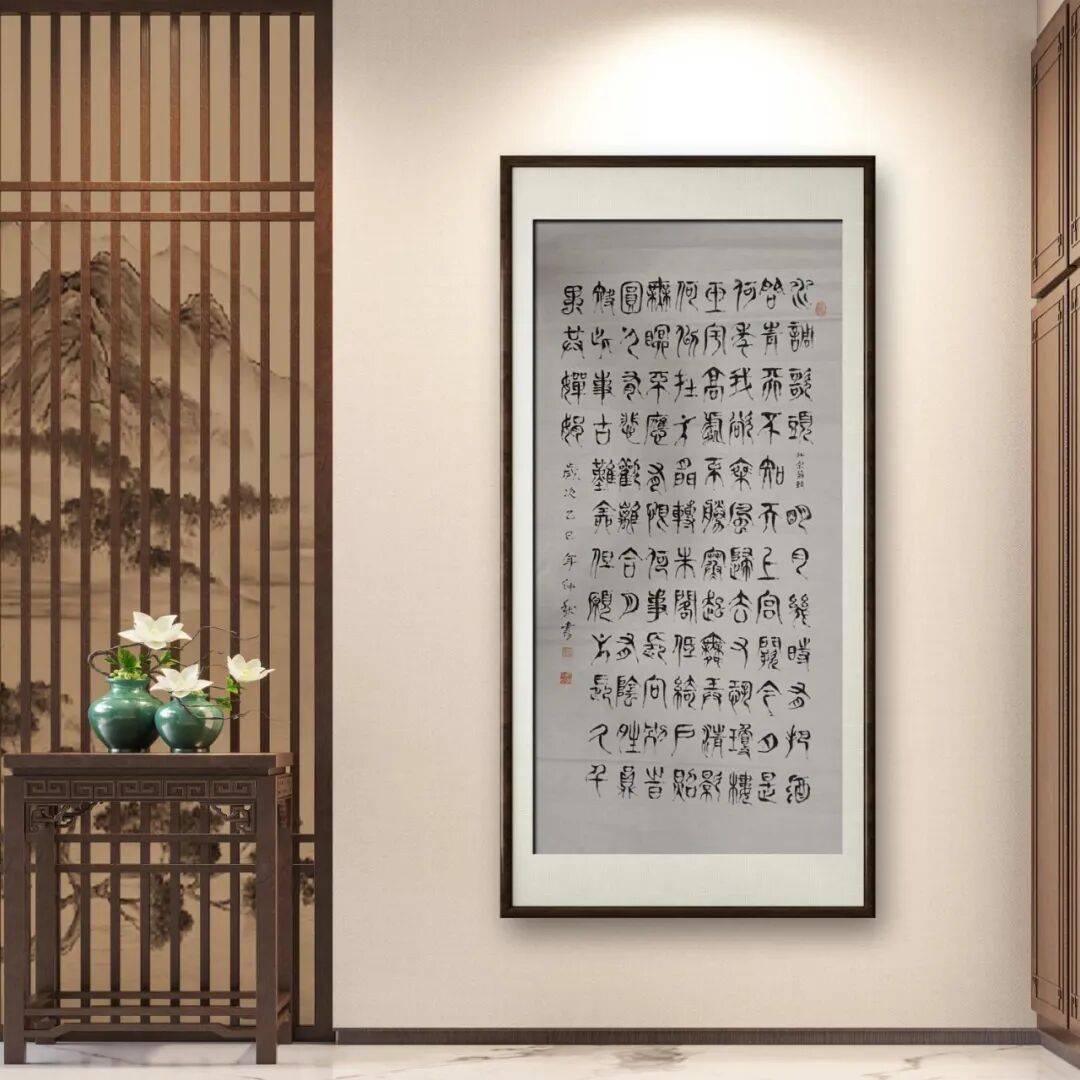 水調歌頭 北宋蘇軾 明月幾時有把酒
問青天不知天上宮闕今夕是
何年我欲乘風歸去又恐瓊樓
玉宇高處不勝寒起舞弄清影
何似在人間轉朱閣低綺戶照
無眠不應有恨何事長向別時
圓人有悲歡離合月有陰晴圓
缺此事古難全但願人長久千
里共嬋娟 歲次乙巳年仲秋書